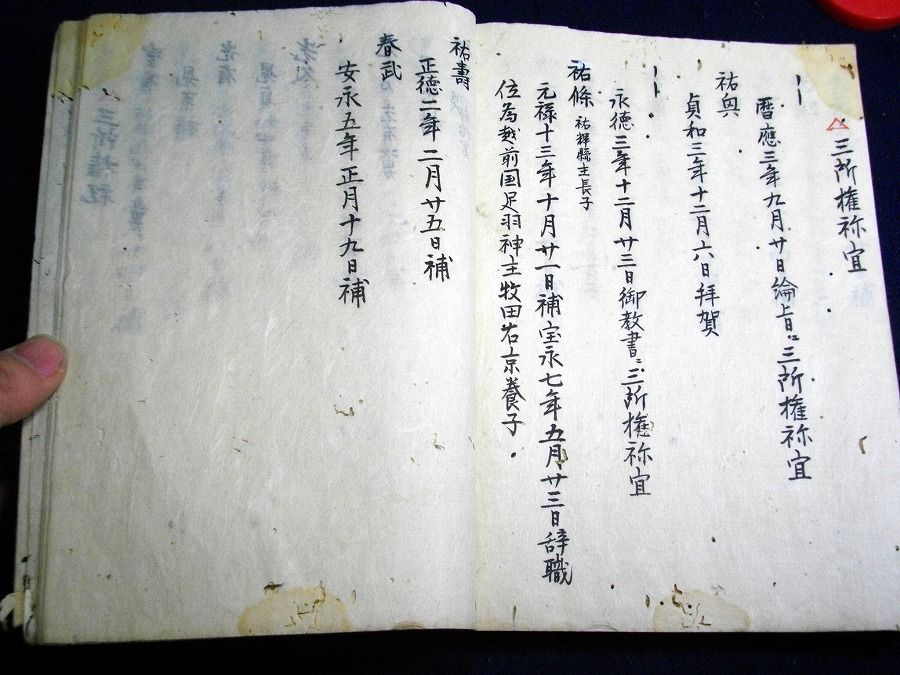 △三所権祢宜
暦應三年九月廿日綸旨ニ三所権祢宜
祐興
貞和三年十二月六日拝賀
永徳三年十二月廿三日御教書ニ三所権祢宜
祐條 祐輝縣主長子
元禄十三年十月廿一日補宝永七年五月廿三日辞職
位為越前国足羽神主牧田右京養子
祐壽
正徳二年二月廿五日補
春武
安永五年正月十九日補